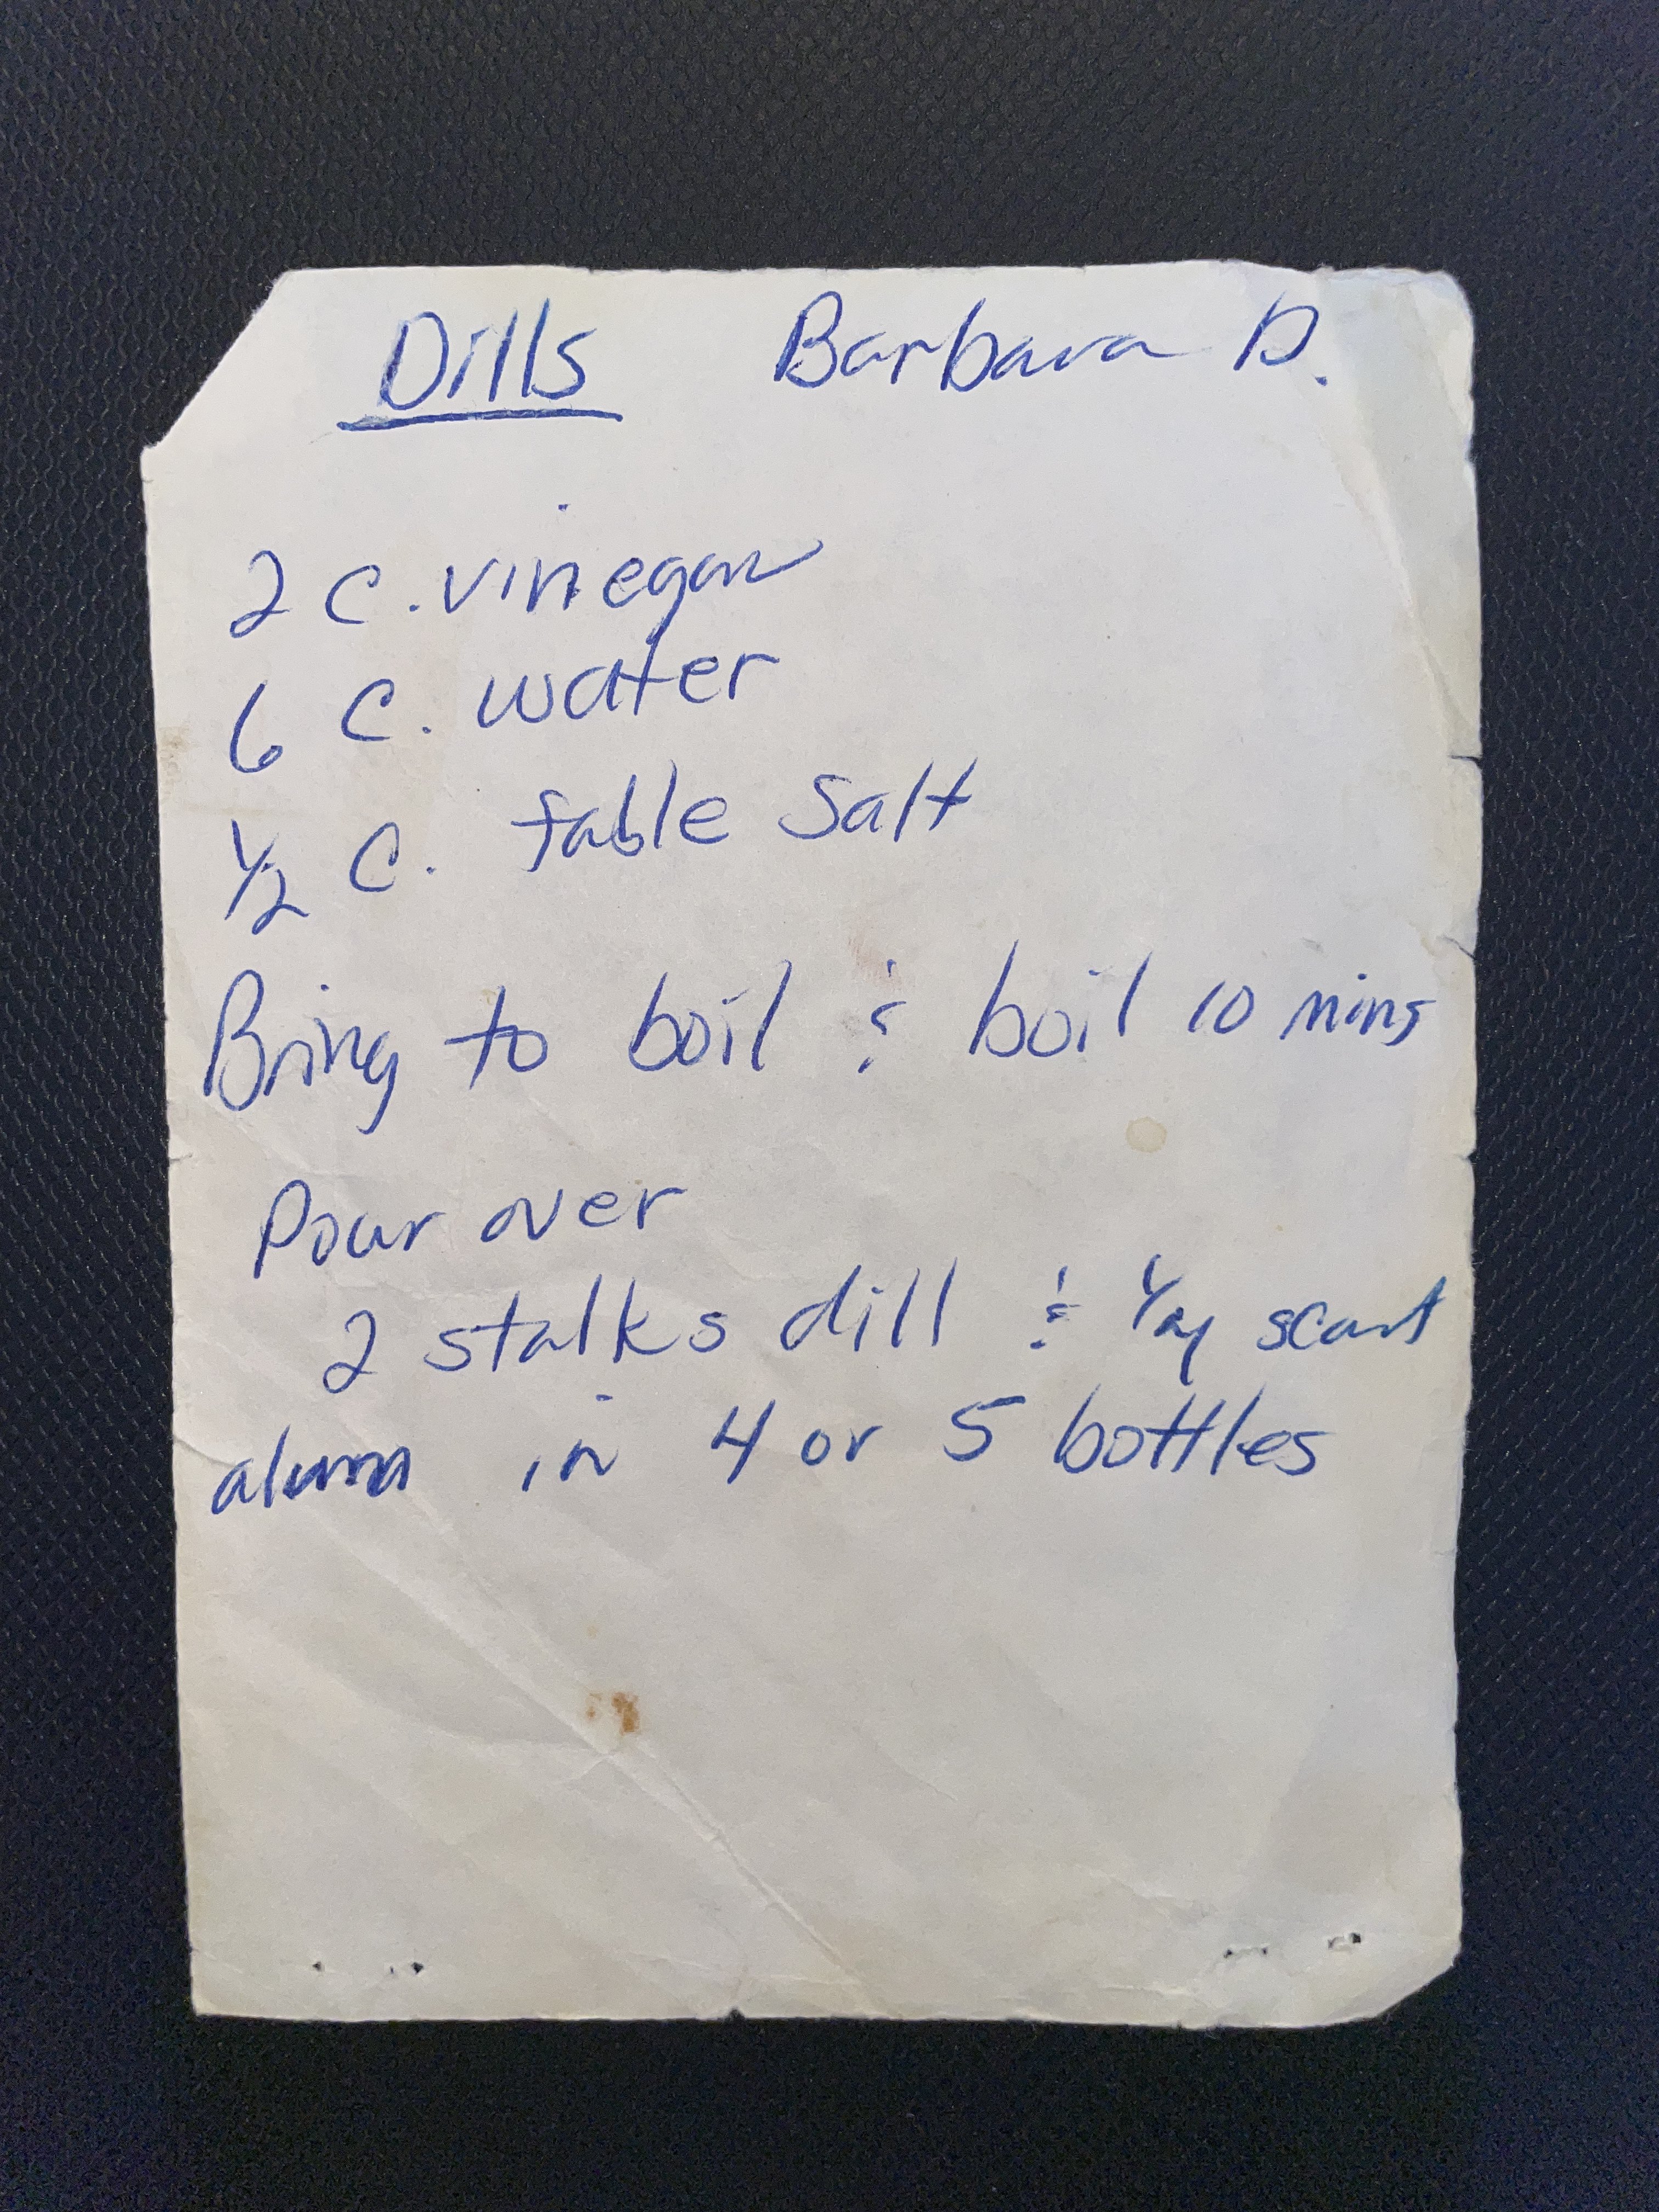 Dills Barbara D.
2 C. vinegar
6 C. water
1/2 C. table Salt
Bring to boil & boil 10 mins
Pour over
2 stalks dill & scant
alum in 4 or 5 bottles